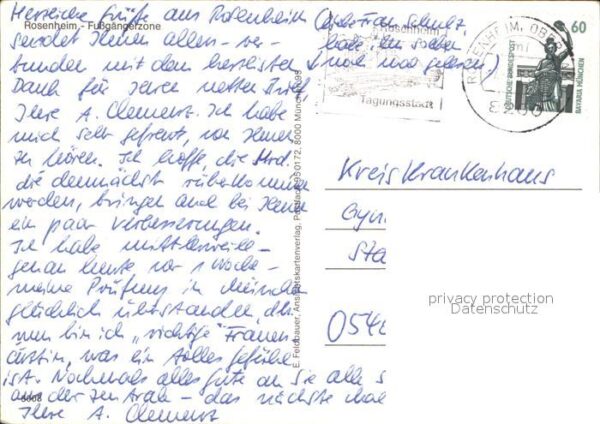 Herzliche Grüße aus Rosenheim (liebe Frau Schulz,
Rosenheim - Fußgängerzone
sendet Ihnen allen - ver- habe Ihn soeben
bunden mit dem herzlichsten noch mal gelesen)
Dank für Ihren netten Brief
Ihre A. Clemens. Ich habe
mich sehr gefreut, von Ihnen
zu hören. Ich hoffe, die
die demnächst rüberkommen
werden, bringen auch bei Ihnen
ein paar Verbesserungen.
Ich habe mittlerweile -
genau heute vor 1 Woche -
meine Prüfung in
glücklich überstanden,
nun bin ich „richtige" Frauen-
ärztin, was ein tolles Gefühl
ist. Nochmals alles Gute an Sie alle
aus der - das nächste mal
Ihre A. Clemens
6008
E. Feldbauer, Ansichtskartenverlag, Postfach 950172, 8000 München 95
Rosenheim
Tagungsstadt
ROSENHEIM, OBB
8200
60
DEUTSCHE BUNDESPOST
BAVARIA MÜNCHEN
Kreiskrankenhaus
Gyn
Sta
054
privacy protection
Datenschutz